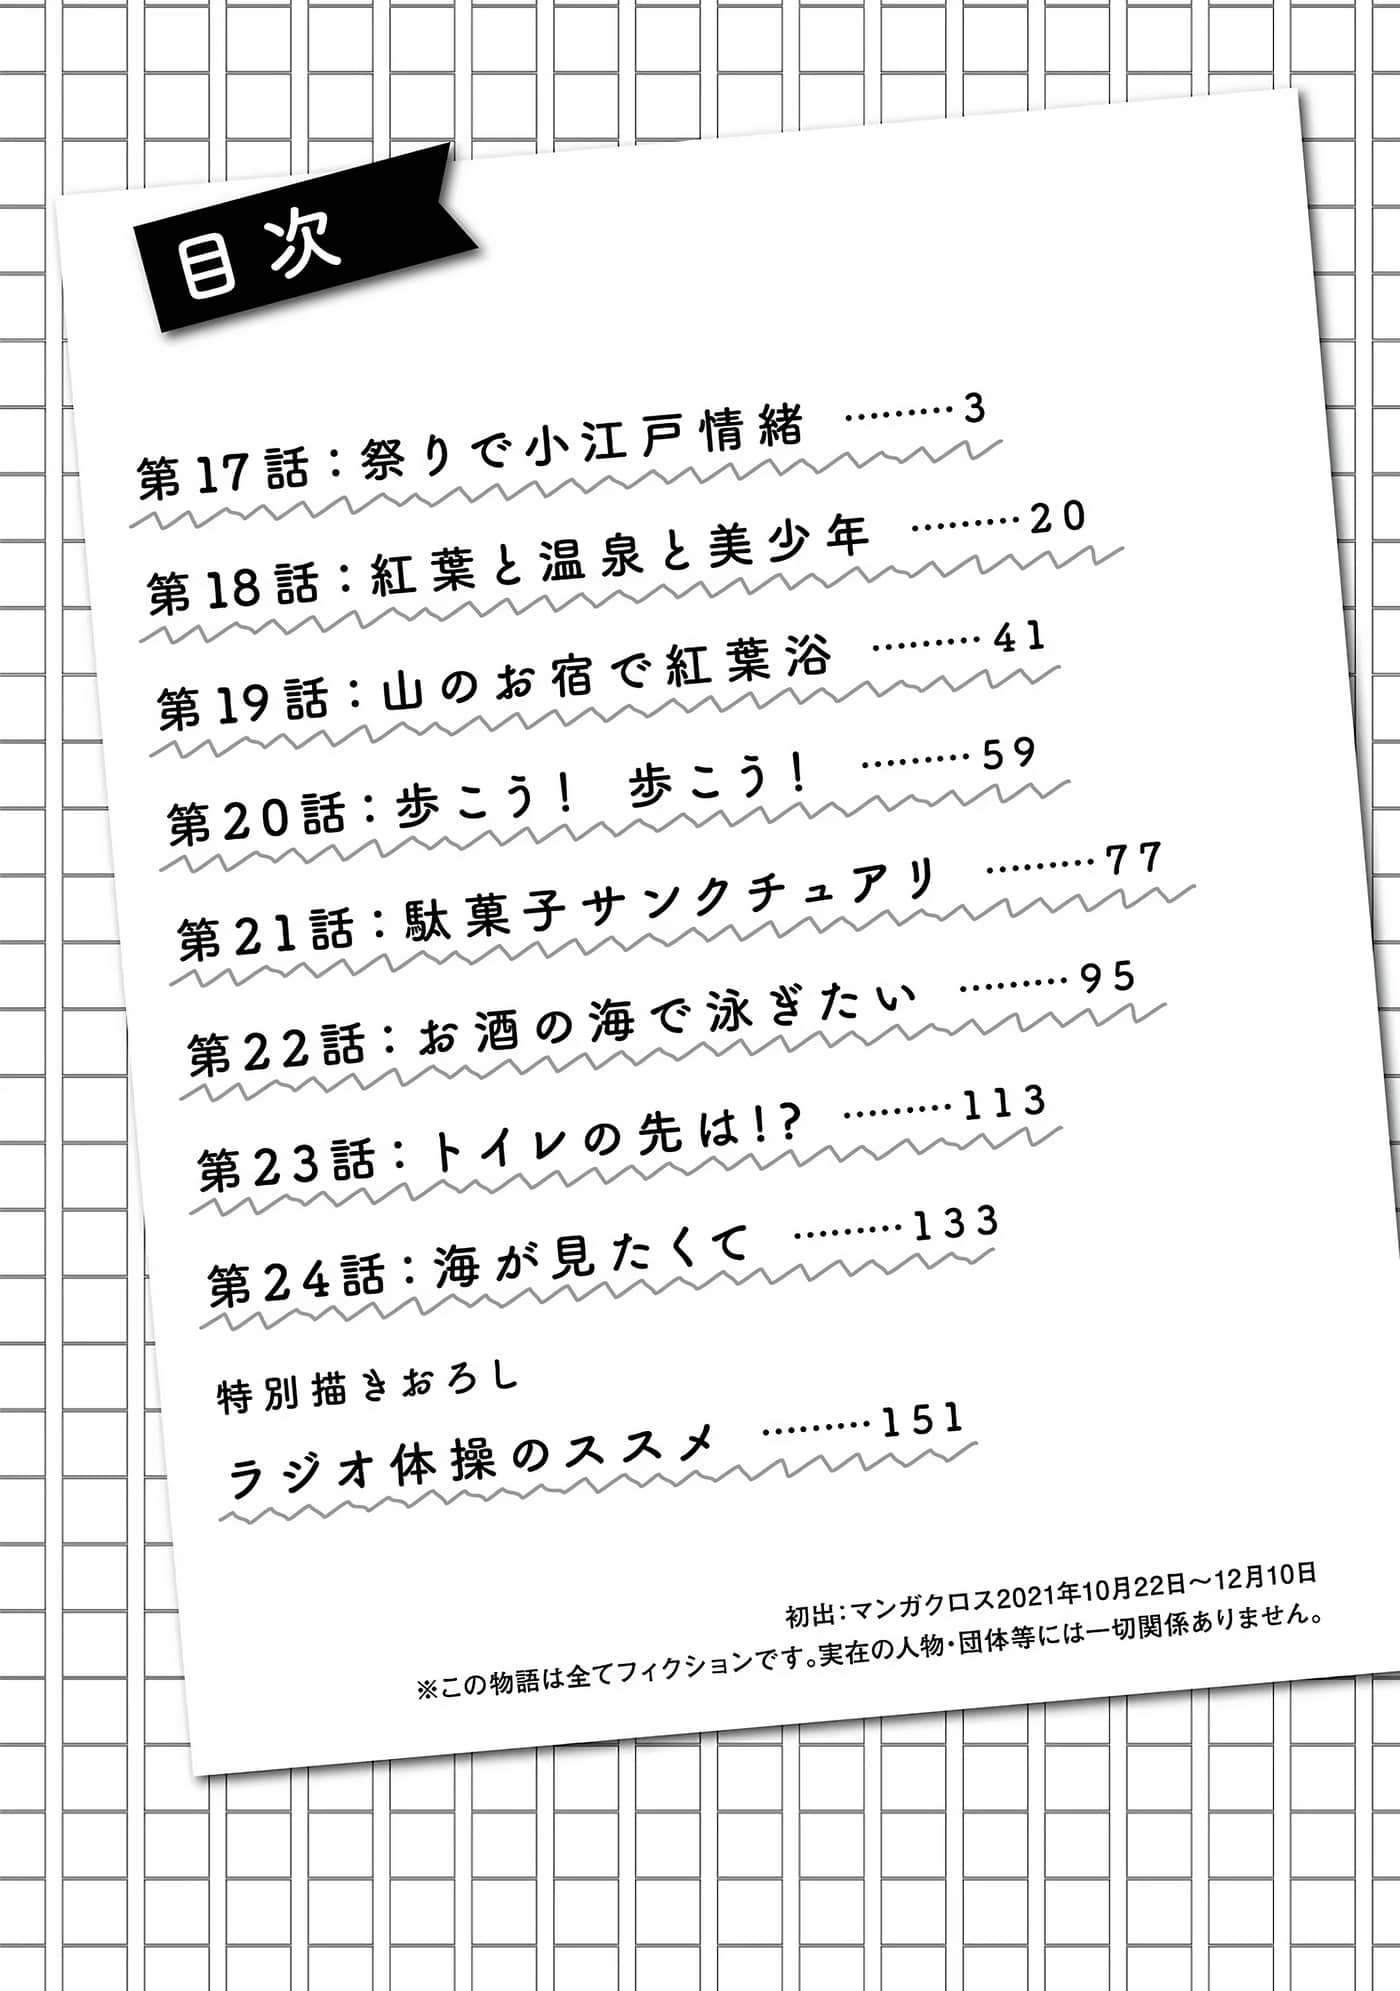 目次
第17話：祭りで小江戸情緒 ………3
第18話：紅葉と温泉と美少年 ………20
第19話：山のお宿で紅葉浴 ………41
第20話：歩こう！　歩こう！ ………59
第21話：駄菓子サンクチュアリ ………77
第22話：お酒の海で泳ぎたい ………95
第23話：トイレの先は!? ………113
第24話：海が見たくて ………133
特別描きおろし
ラジオ体操のススメ ………151
初出：マンガクロス2021年10月22日～12月10日
※この物語は全てフィクションです。実在の人物・団体等には一切関係ありません。